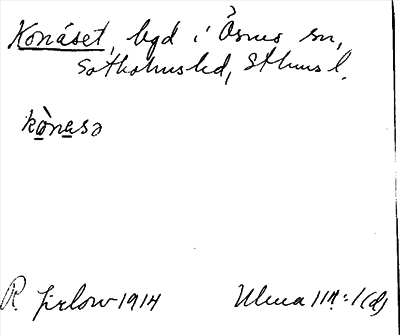 Konåset, bgd i Ösmo sn,
Sotholms hd, Sthms l.
kònasə
R. Jirlow 1914
Ulma 111:1(d)